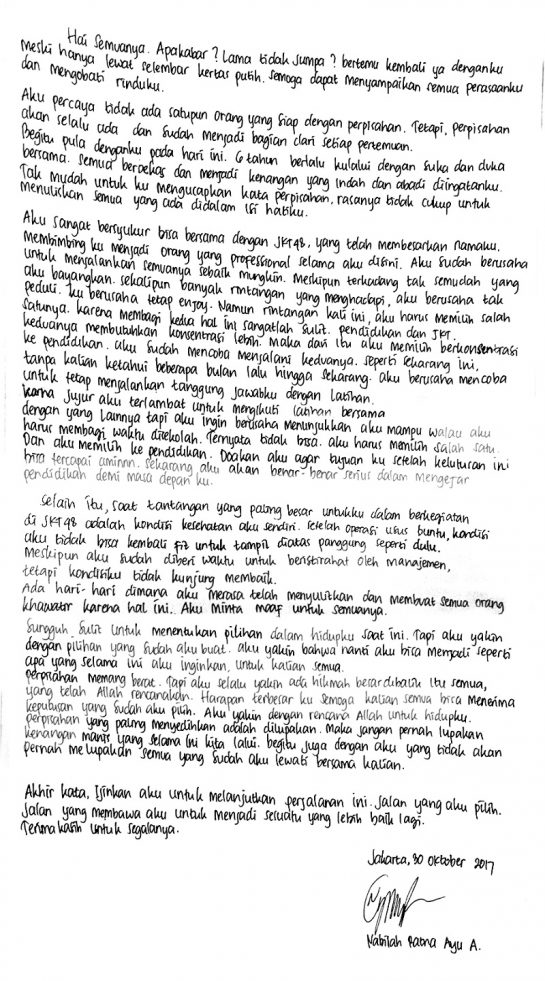 Hai semuanya. Apakabar? Lama tidak jumpa? bertemu kembali ya denganku
Meski hanya lewat selembar kertas putih. Semoga dapat menyampaikan semua perasaanku
dan mengobati rinduku.
Aku percaya tidak ada satupun orang yang siap dengan perpisahan. Tetapi, perpisahan
akan selalu ada dan sudah menjadi bagian dari setiap pertemuan.
Begitu pula denganku pada hari ini. 6 tahun berlalu kulalui dengan suka dan duka
bersama. Semua berbekas dan menjadi kenangan yang indah dan abadi diingatanku.
Tak mudah untuk ku mengucapkan kata perpisahan, rasanya tidak cukup untuk
menuliskan semua yang ada didalam isi hatiku.
Aku sangat bersyukur bisa bersama dengan JKT48, yang telah membesarkan namaku.
Membimbing ku menjadi orang yang professional selama aku disini. Aku sudah berusaha
untuk menjalankan semuanya sebaik mungkin. Meskipun terkadang tak semudah yang
aku bayangkan. sekalipun banyak rintangan yang menghadapi, aku berusaha tak
peduli. ku berusaha tetap enjoy. Namun rintangan kali ini, aku harus memilih salah
satunya. karena membagi kedua hal ini sangatlah sulit. pendidikan dan JKT.
keduanya membutuhkan konsentrasi lebih. Maka dari itu aku memilih berkonsentrasi
ke pendidikan. aku sudah mencoba menjalani keduanya. seperti sekarang ini,
tanpa kalian ketahui beberapa bulan lalu hingga sekarang. aku berusaha mencoba
untuk tetap menjalankan tanggung jawabku dengan latihan.
karna jujur aku terlambat untuk mengikuti latihan bersama
dengan yang lainnya tapi aku ingin berusaha menunjukkan aku mampu walau aku
harus membagi waktu disekolah. Ternyata tidak bisa. aku harus memilih salah satu.
Dan aku memilih ke pendidikan. Doakan aku agar tujuan ku setelah kelulusan ini
bisa tercapai aminnn. sekarang aku akan benar-benar serius dalam mengejar
pendidikan demi masa depan ku.
selain itu, saat tantangan yang paling besar untukku dalam berkegiatan
di JKT48 adalah kondisi kesehatan aku sendiri. setelah operasi usus buntu, kondisi
aku tidak bisa kembali fit untuk tampil diatas panggung seperti dulu.
Meskipun aku sudah diberi waktu untuk beristirahat oleh manajemen,
tetapi kondisiku tidak kunjung membaik.
Ada hari-hari dimana aku merasa telah menyulitkan dan membuat semua orang
khawatir karena hal ini. Aku minta maaf untuk semuanya.
Sungguh sulit untuk menentukan pilihan dalam hidupku saat ini. Tapi aku yakin
dengan pilihan yang sudah aku buat. aku yakin bahwa nanti aku bisa menjadi seperti
apa yang selama ini aku inginkan, untuk kalian semua.
perpisahan memang berat. Tapi aku selalu yakin ada hikmah besar dibalik itu semua,
yang telah Allah rencanakan. Harapan terbesar ku semoga kalian semua bisa menerima
keputusan yang sudah aku pilih. Aku yakin dengan rencana Allah untuk hidupku.
perpisahan yang paling menyedihkan adalah dilupakan. Maka jangan pernah lupakan
kenangan manis yang selama ini kita lalui. begitu juga dengan aku yang tidak akan
pernah melupakan semua yang sudah aku lewati bersama kalian.
Akhir kata, Izinkan aku untuk melanjutkan perjalanan ini. Jalan yang aku pilih.
Jalan yang membawa aku untuk menjadi sesuatu yang lebih baik lagi.
Terimakasih untuk segalanya.
Jakarta, 30 Oktober 2017
Nabilah Ratna Ayu A.